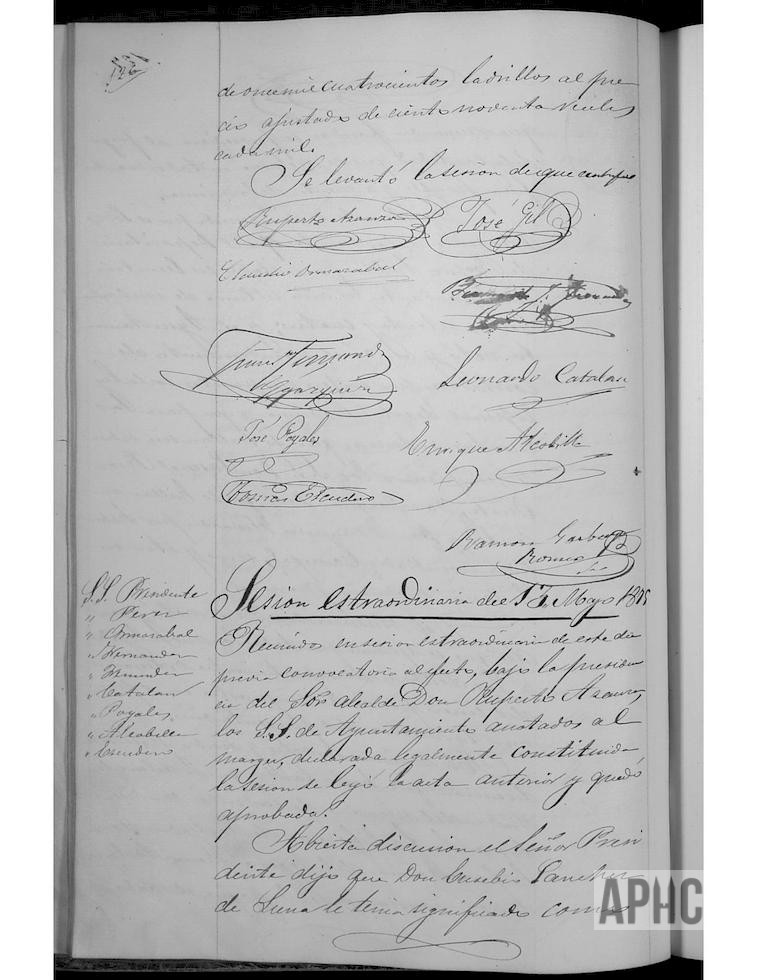 126
de once mil cuatrocientos ladrillos al pre
cio ajustado de ciento noventa reales
cada mil.
Se levantó la sesion de que certifico
Ruperto Azanza José Gil
Claudio Ormazabal
Fernandez
Leonardo Catalan
José Poyales
Enrique Alcobilla
Tomás Escudero
Ramon
Romeo
Sesion estraordinaria del 17 Mayo
S.S. Presidente
" Perez
" Ormazabal
" Hernandez
" Catalan
" Poyales
" Alcobilla
" Escudero
Reunidos en sesion estraordinaria de este dia
previa convocatoria al efecto, bajo la presiden
cia del Sor Alcalde Don Ruperto Azanza,
los S.S. de Ayuntamiento anotados al
margen, declarada legalmente constituida
la sesion se leyó la acta anterior y quedó
aprobada.
Abierta discusion el Señor Presi
dente dijo que Don Eusebio Sanchez
de Luna le tenia significado como
APHC